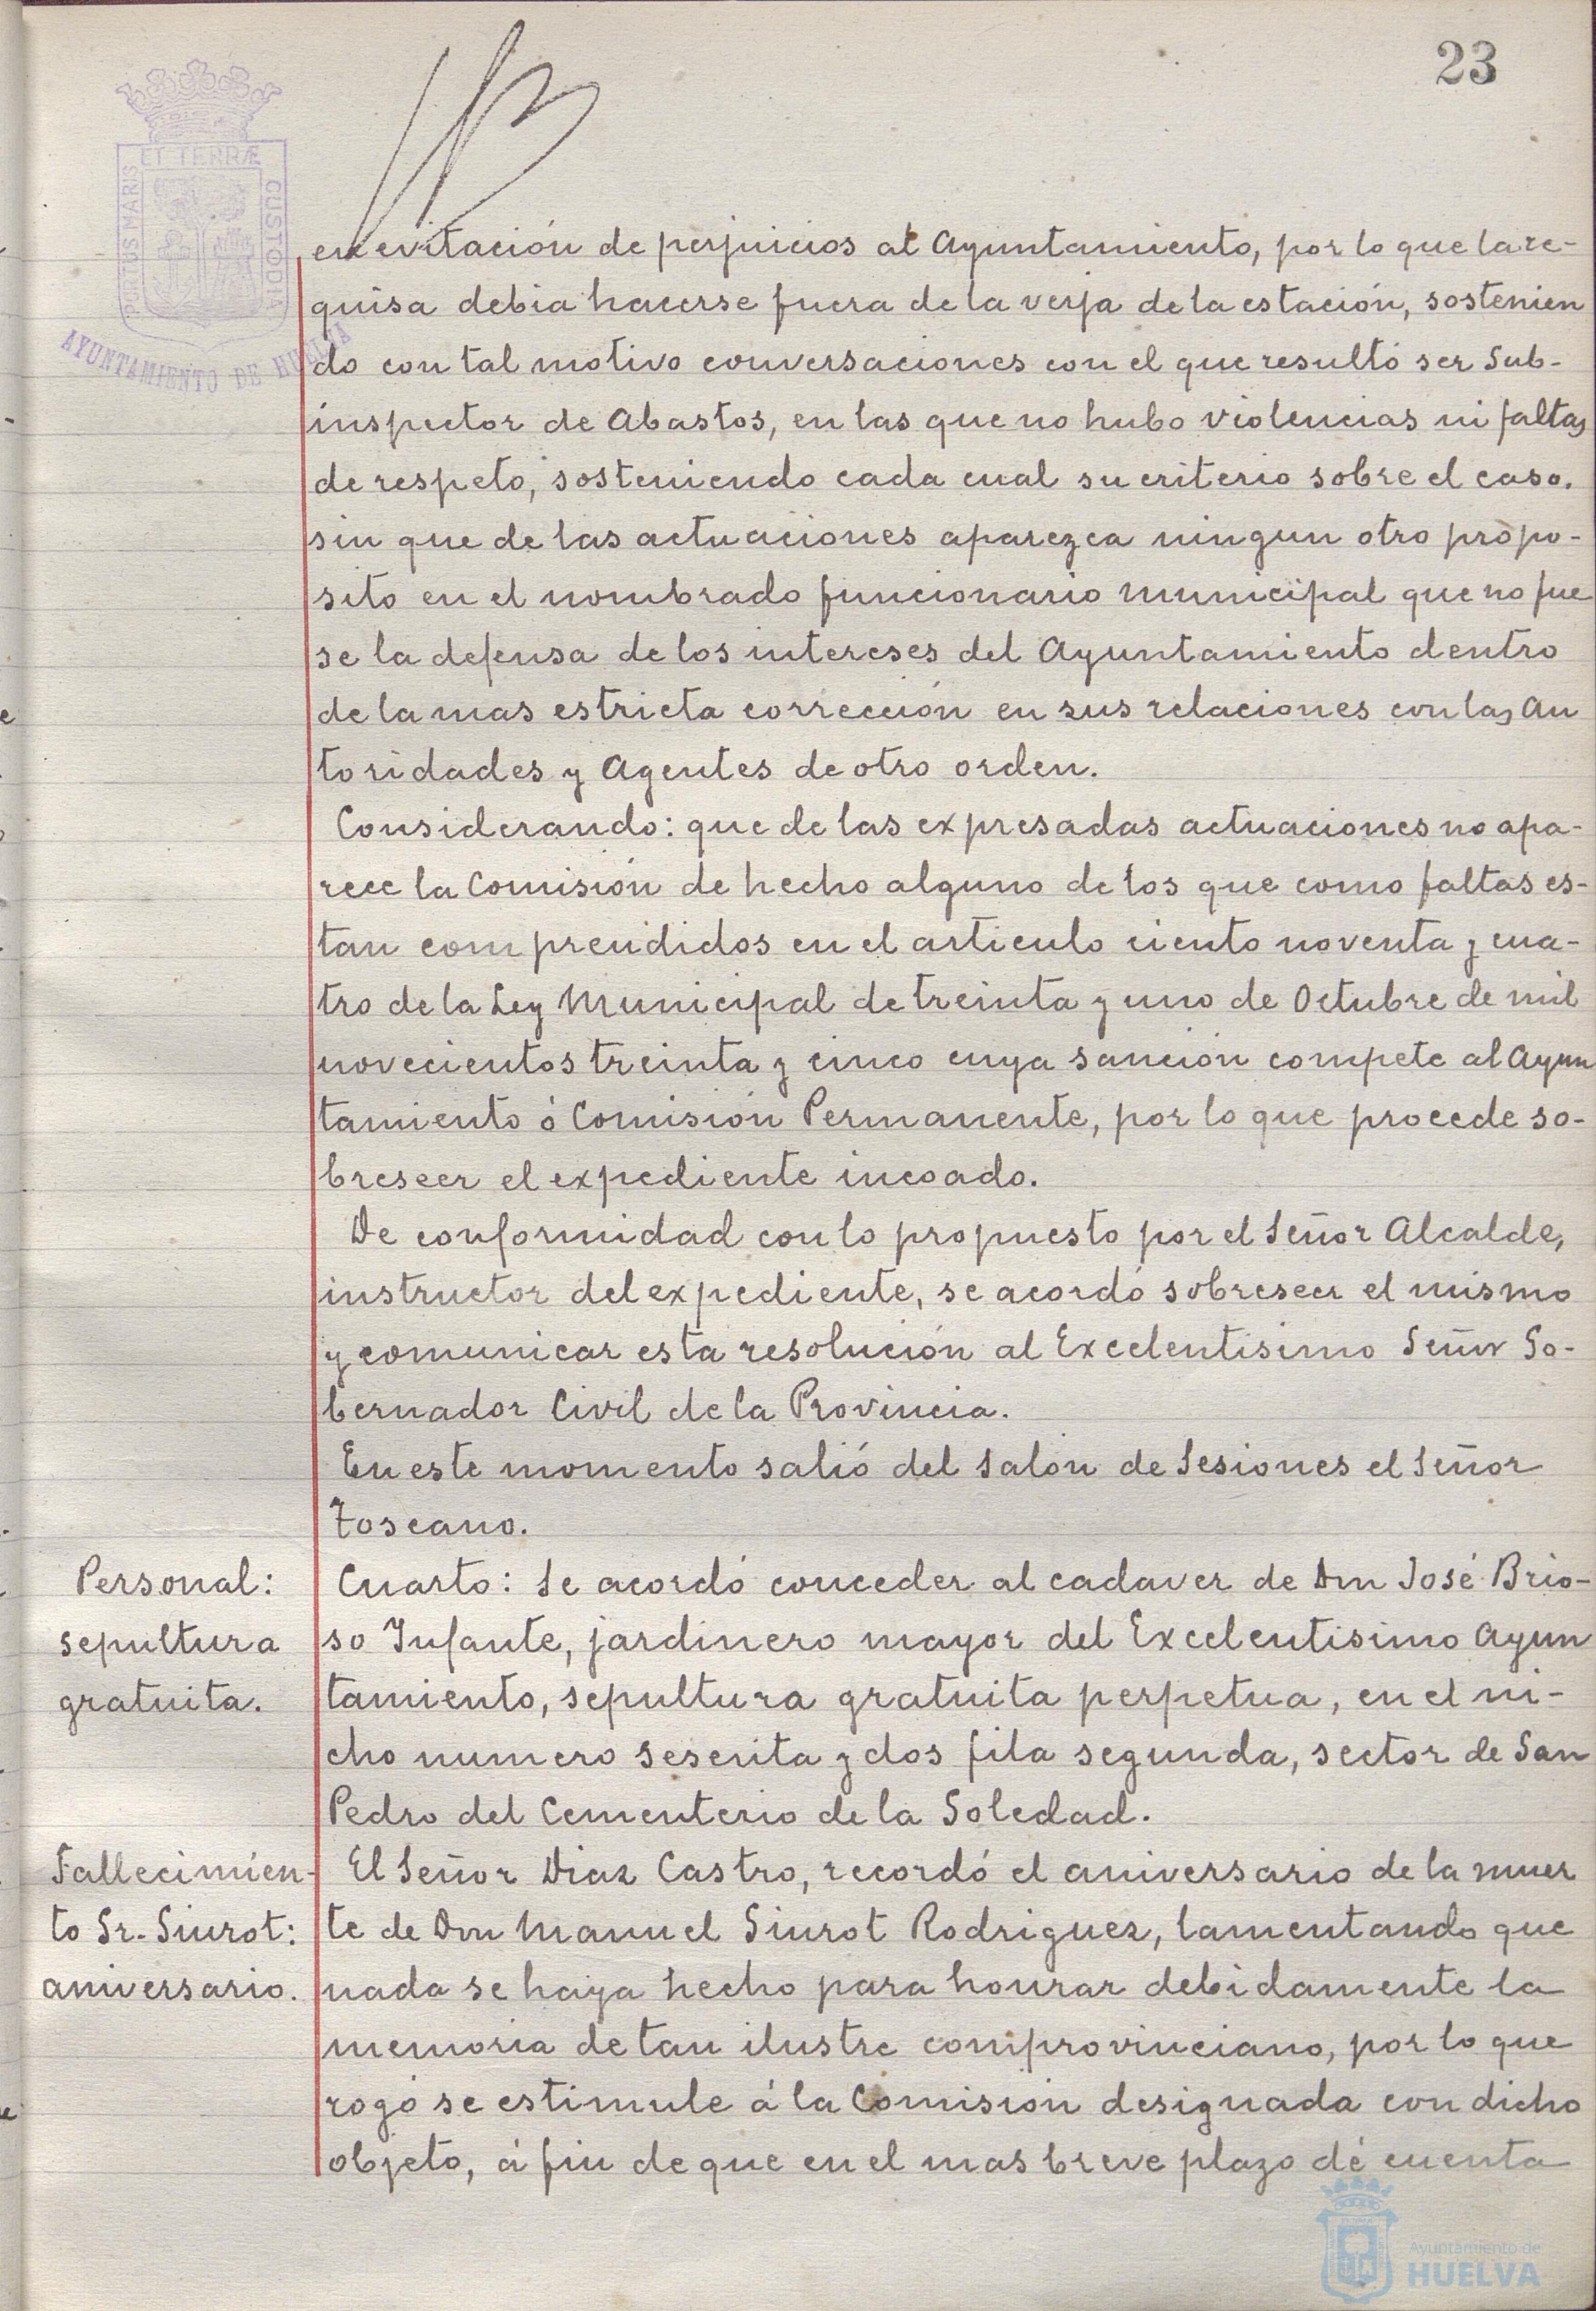 23
PORTUS MARIS ET TERRÆ CUSTODIA
AYUNTAMIENTO DE HUELVA
en evitación de perjuicios al Ayuntamiento, por lo que la re-
quisa debia hacerse fuera de la verja de la estación, sostenien
do con tal motivo conversaciones con el que resultó ser Sub-
inspector de Abastos, en las que no hubo violencias ni faltas
de respeto, sosteniendo cada cual su criterio sobre el caso.
sin que de las actuaciones aparezca ningun otro propo-
sito en el nombrado funcionario municipal que no fue
se la defensa de los intereses del Ayuntamiento dentro
de la mas estricta corrección en sus relaciones con las Au
toridades y Agentes de otro orden.
Considerando: que de las expresadas actuaciones no apa-
rece la Comisión de hecho alguno de los que como faltas es-
tan comprendidos en el articulo ciento noventa y cua-
tro de la Ley Municipal de treinta y uno de Octubre de mil
novecientos treinta y cinco cuya sanción compete al Ayun
tamiento ó Comisión Permanente, por lo que procede so-
breseer el expediente incoado.
De conformidad con lo propuesto por el Señor Alcalde,
instructor del expediente, se acordó sobreseer el mismo
y comunicar esta resolución al Excelentisimo Señor Go-
bernador Civil de la Provincia.
En este momento salió del Salón de Sesiones el Señor
Toscano.
Personal:
sepultura
gratuita.
Cuarto: Se acordó conceder al cadaver de Don José Brio-
so Infante, jardinero mayor del Excelentisimo Ayun
tamiento, sepultura gratuita perpetua, en el ni-
cho numero sesenta y dos fila segunda, sector de San
Pedro del Cementerio de la Soledad.
Fallecimien-
to Sr. Siurot:
aniversario.
El Señor Diaz Castro, recordó el aniversario de la muer
te de Don Manuel Siurot Rodriguez, lamentando que
nada se haya hecho para honrar debidamente la
memoria de tan ilustre comprovinciano, por lo que
rogó se estimule á la Comisión designada con dicho
objeto, á fin de que en el mas breve plazo dé cuenta
Ayuntamiento de
HUELVA